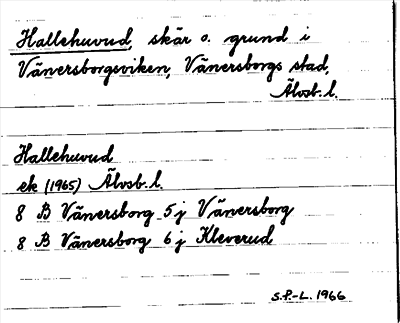 Hallehuvud, skär o. grund i
Vänersborgsviken, Vänersborgs stad,
Älvsb. l.
Hallehuvud
ek (1965) Älvsb. l.
8 B Vänersborg 5 j Vänersborg
8 B Vänersborg 6 j Kleverud
S.P.-L. 1966